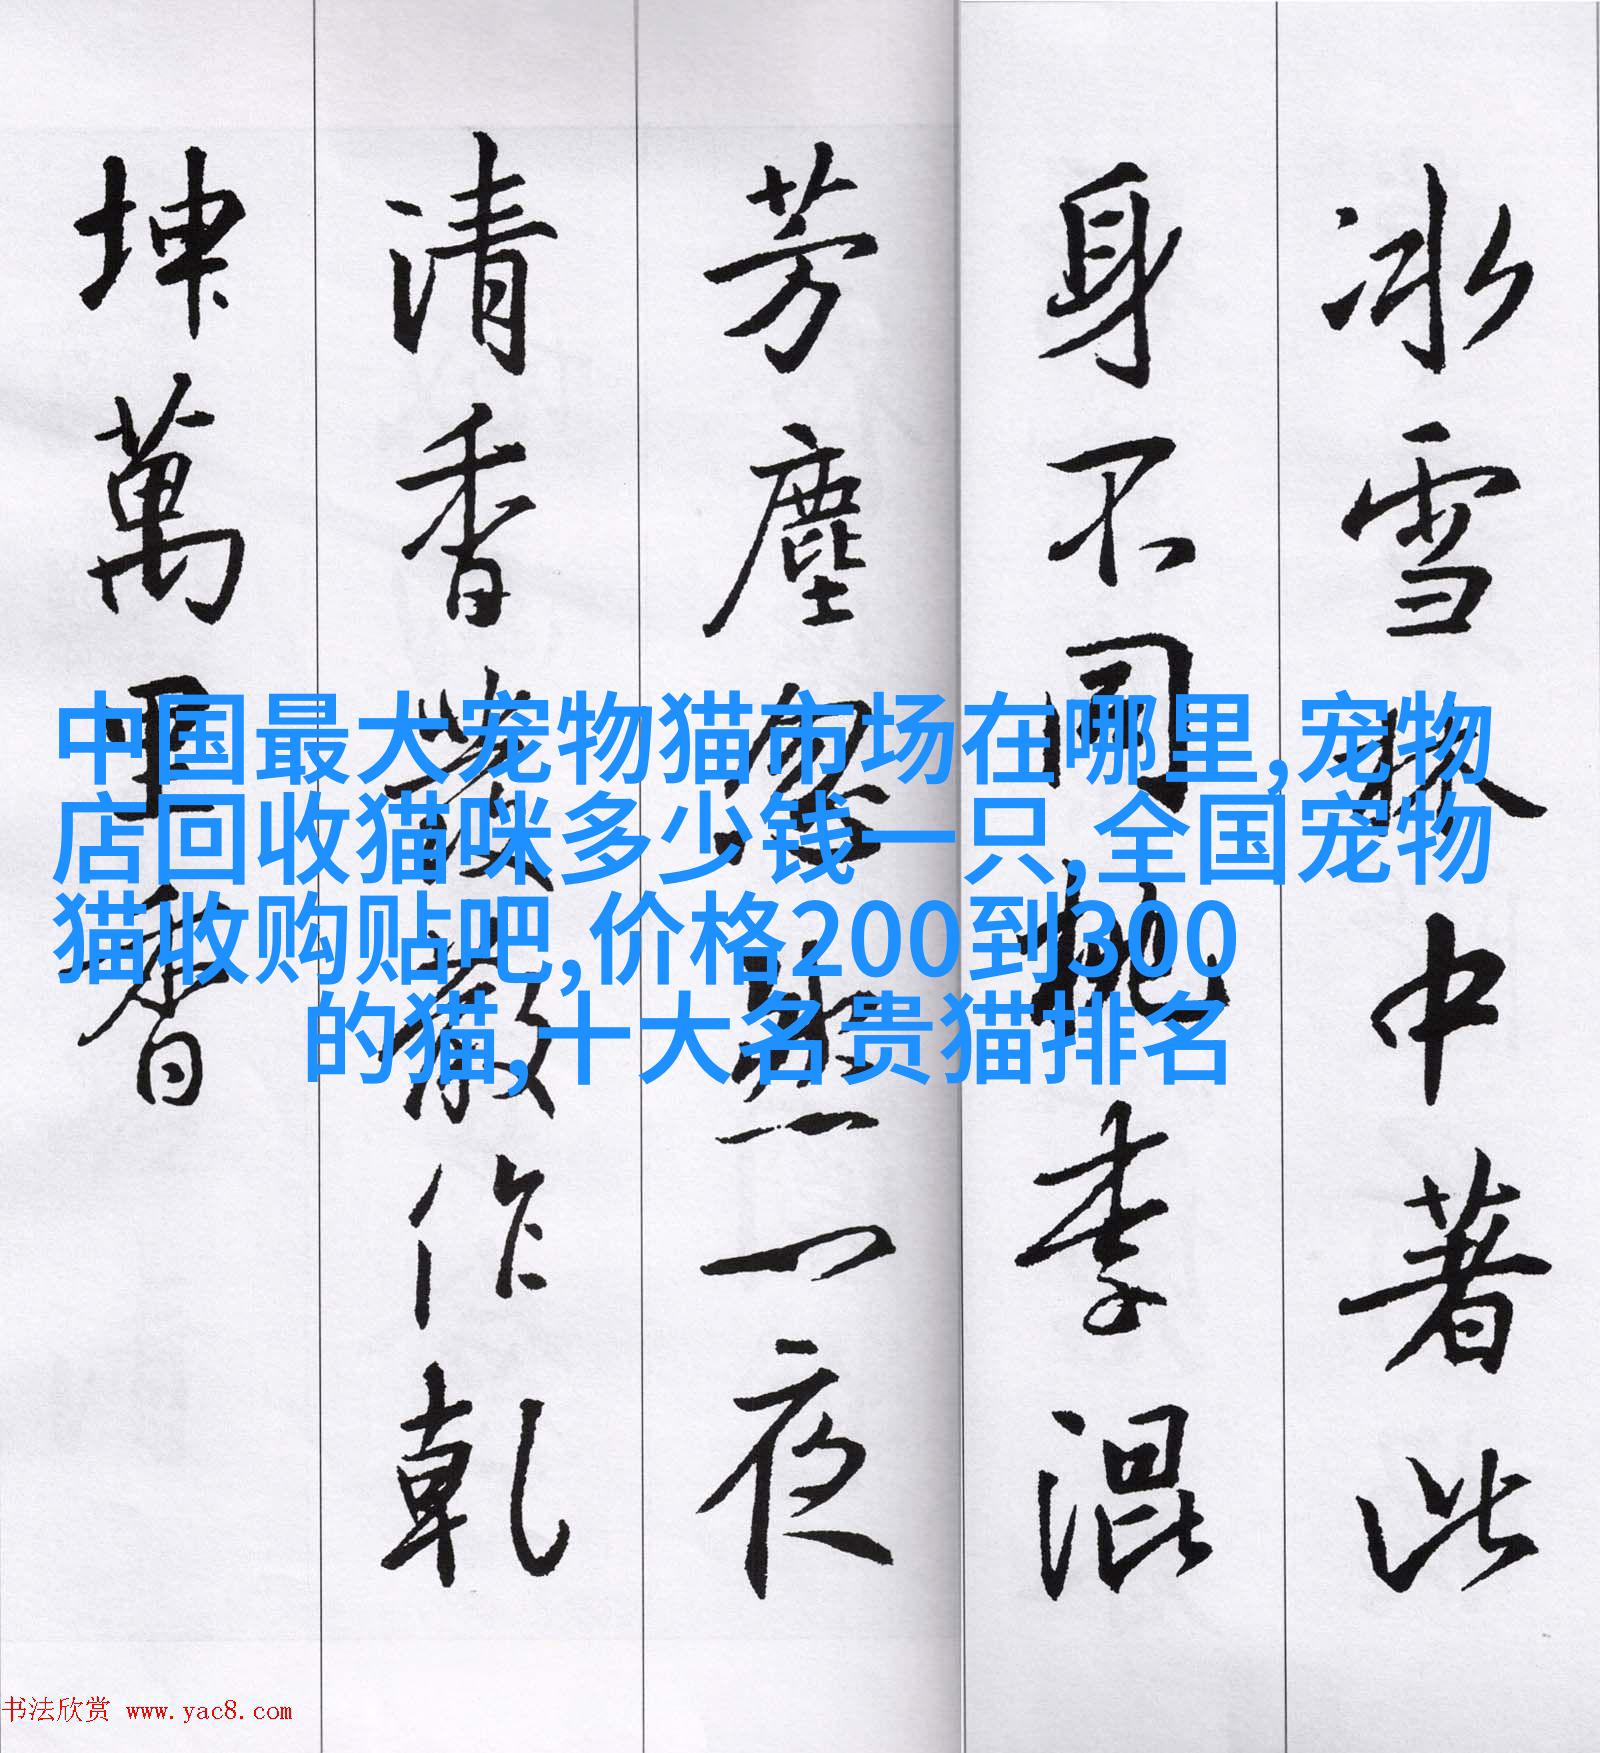 冰雪林中著此
身不同桃李混
芳塵忽然一夜
清香發散作乾
坤萬里春
中国最大宠物猫市场在哪里,宠物
店回收猫咪多少钱一只,全国宠物
猫收购贴吧,价格200到300
的猫,十大名贵猫排名
书法欣赏 www.yac8.com